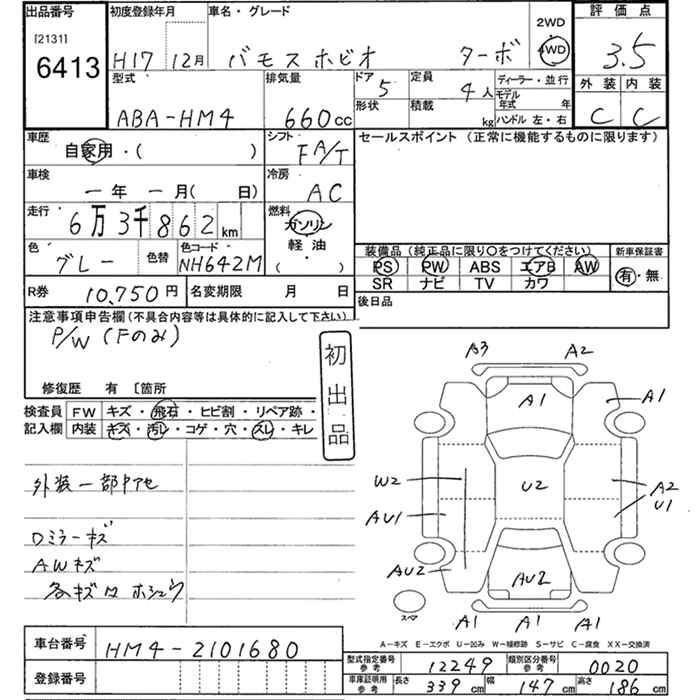 出品番号
[2131]
6413
初度登録年月
H17 12月
車名・グレード
バモスホビオ ターボ
2WD
4WD
評価点
3.5
外装 内装
C C
型式
ABA-HM4
排気量
660cc
ドア
5
定員
4人
形状
積載
kg
ディーラー・並行
モデル年式 年
ハンドル 左・右
車歴
自家用・( )
シフト
F A/T
セールスポイント (正常に機能するものに限ります)
車検
一年 一月( 日)
冷房
AC
走行
6万3千862km
燃料
ガソリン
軽油
・
( )
色
グレー
色替
色コード
NH642M
装備品(純正品に限り○をつけてください)
PS PW ABS エアB AW
SR ナビ TV カワ
新車保証書
有・無
R券
10,750円
名変期限 月 日
後日品
注意事項申告欄(不具合内容等は具体的に記入して下さい)
P/W (Fのみ)
初出品
修復歴 有 〔箇所
検査員記入欄
FW キズ・飛石・ヒビ割・リペア跡・
内装 キズ・汚レ・コゲ・穴・スレ・キレ
外装一部ヤケ
Dミラーキズ
AWキズ
各キズロホシュウ
B3 A2
A1 A1
W2 U2 A2
AU1 U1
AU2 AU2
スペア
A1 A1 A1
A-キズ E-エクボ U-凹み W-補修跡 S-サビ C-腐食 XX-交換済
車台番号
HM4-2101680
登録番号
型式指定番号 参考
12249
類別区分番号 参考
0020
車庫証明用 参考
長さ 339cm
幅 147cm
高さ 186cm